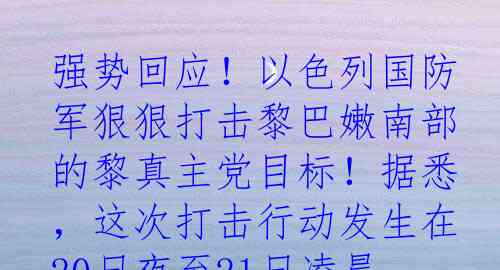 强势回应！以色列国防
军狠狠打击黎巴嫩南部
的黎真主党目标！据悉
，这次打击行动发生在
20日夜至21日凌晨